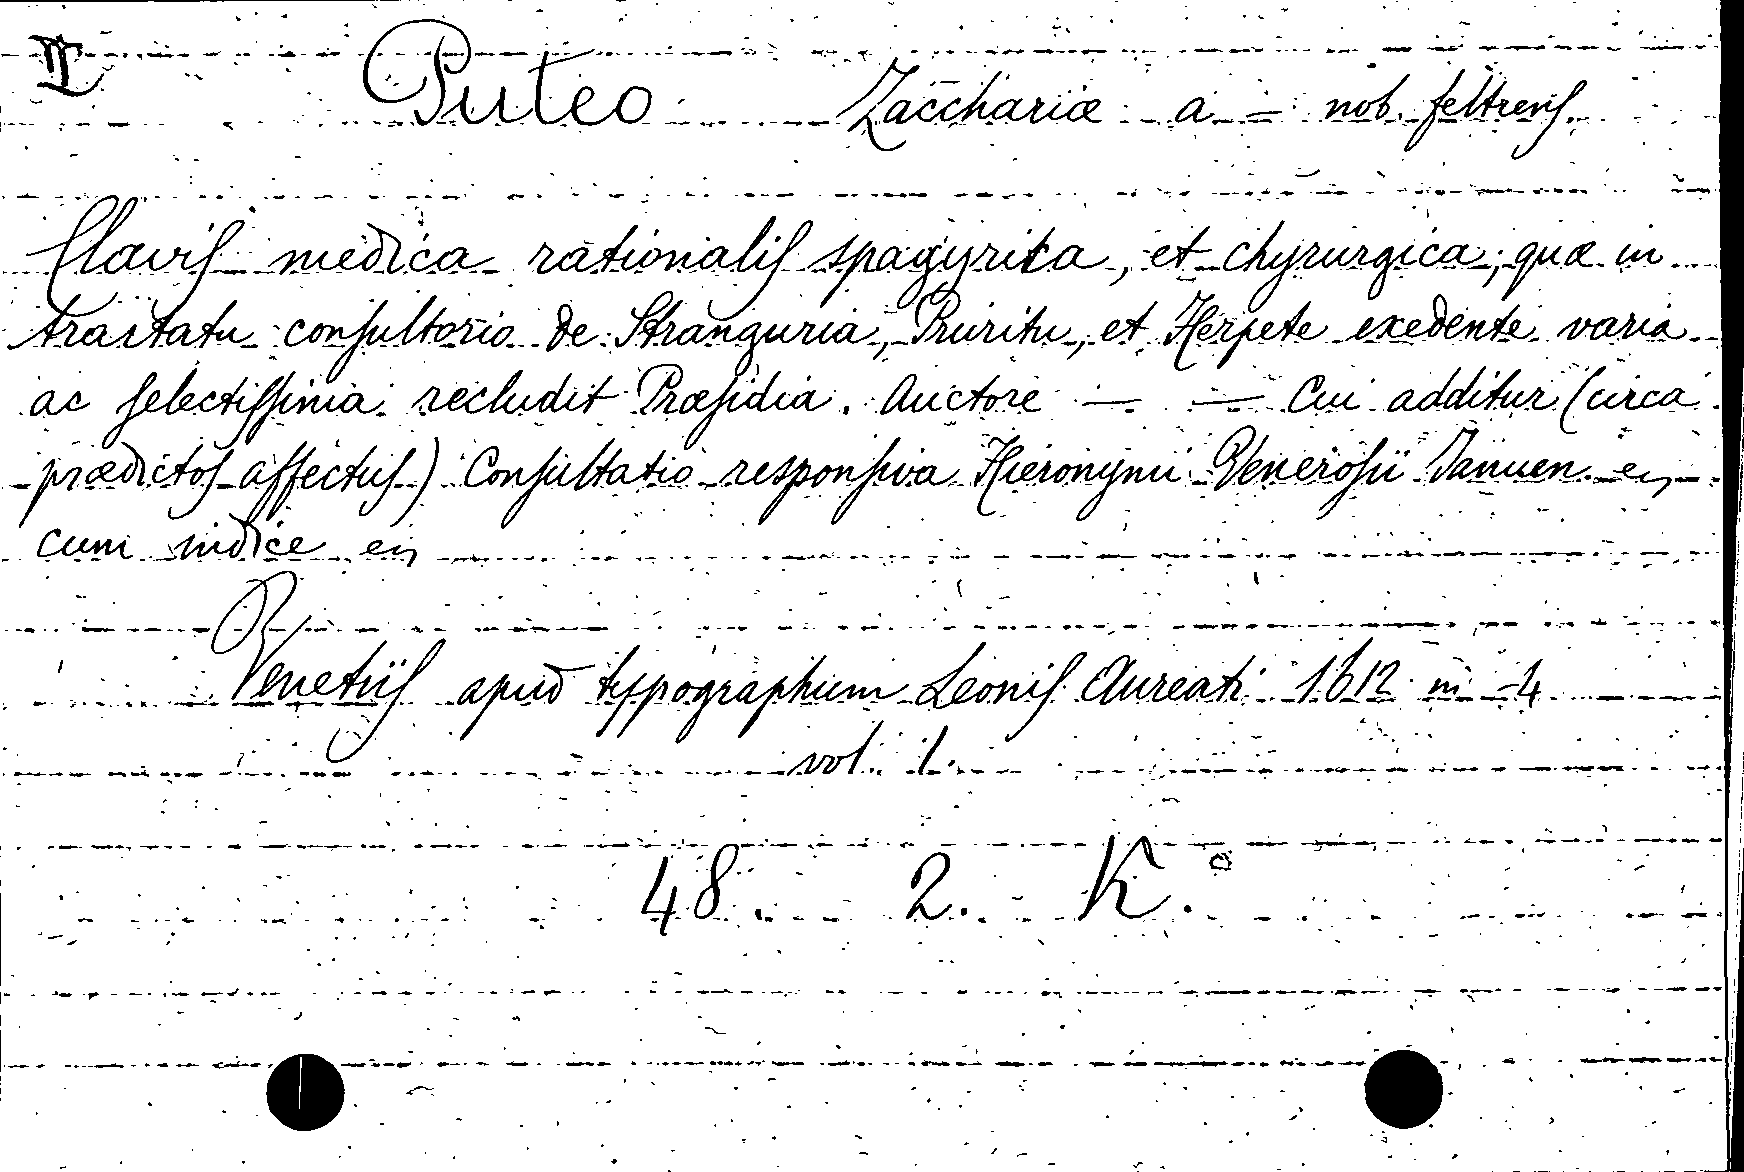 Puteo Zacchariæ a — nob. feltrens.
Clavis medica rationalis spagyrica, et chyrurgica; quæ in
tractatu consultorio de Stranguria, Pruritu, et Herpete exedente varia
ac selectissima recludit Præsidia. Auctore — — Cui additur (circa
prædictos affectus) Consultatio responsiva Hieronymi Venerosii Januen.
cum indice
Venetiis apud typographum Leonis Aureati 1612 in 4
vol. 1.
48. 2. K.°